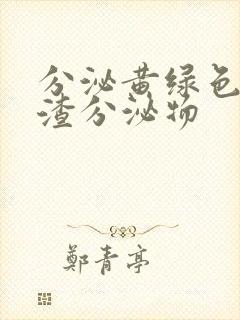 分泌黄绿色
渣分泌物
郑青亭